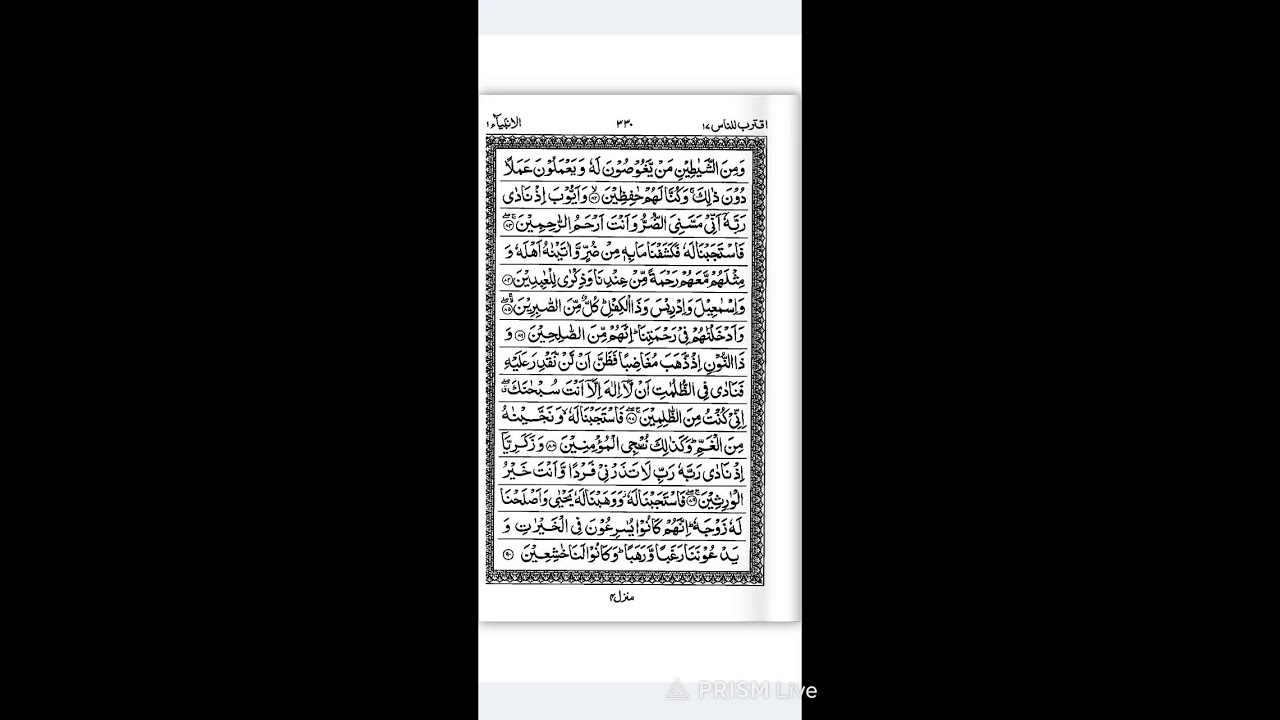 اقترب للناس ١٧ ٣٣٠ الانبیآء ٢١
وَمِنَ الشَّیٰطِیْنِ مَنْ یَّغُوْصُوْنَ لَهٗ وَ یَعْمَلُوْنَ عَمَلًا
دُوْنَ ذٰلِكَ ۚ وَكُنَّا لَهُمْ حٰفِظِیْنَ ۙ﴿۸۲﴾ وَاَیُّوْبَ اِذْ نَادٰی
رَبَّهٗۤ اَنِّیْ مَسَّنِیَ الضُّرُّ وَاَنْتَ اَرْحَمُ الرّٰحِمِیْنَ ۚۖ﴿۸۳﴾
فَاسْتَجَبْنَا لَهٗ فَكَشَفْنَا مَا بِهٖ مِنْ ضُرٍّ وَّاٰتَیْنٰهُ اَهْلَهٗ وَ
مِثْلَهُمْ مَّعَهُمْ رَحْمَةً مِّنْ عِنْدِنَا وَذِكْرٰی لِلْعٰبِدِیْنَ ﴿۸۴﴾
وَاِسْمٰعِیْلَ وَاِدْرِیْسَ وَذَا الْكِفْلِ ؕ كُلٌّ مِّنَ الصّٰبِرِیْنَ ۚۖ﴿۸۵﴾
وَاَدْخَلْنٰهُمْ فِیْ رَحْمَتِنَا ؕ اِنَّهُمْ مِّنَ الصّٰلِحِیْنَ ﴿۸۶﴾ وَ
ذَا النُّوْنِ اِذْ ذَّهَبَ مُغَاضِبًا فَظَنَّ اَنْ لَّنْ نَّقْدِرَ عَلَیْهِ
فَنَادٰی فِی الظُّلُمٰتِ اَنْ لَّاۤ اِلٰهَ اِلَّاۤ اَنْتَ سُبْحٰنَكَ ۖۗ
اِنِّیْ كُنْتُ مِنَ الظّٰلِمِیْنَ ۚۖ﴿۸۷﴾ فَاسْتَجَبْنَا لَهٗ ۙ وَ نَجَّیْنٰهُ
مِنَ الْغَمِّ ؕ وَكَذٰلِكَ نُـنْجِی الْمُؤْمِنِیْنَ ﴿۸۸﴾ وَ زَكَرِیَّاۤ
اِذْ نَادٰی رَبَّهٗ رَبِّ لَا تَذَرْنِیْ فَرْدًا وَّاَنْتَ خَیْرُ
الْوٰرِثِیْنَ ۚۖ﴿۸۹﴾ فَاسْتَجَبْنَا لَهٗ ؗ وَوَهَبْنَا لَهٗ یَحْیٰی وَاَصْلَحْنَا
لَهٗ زَوْجَهٗ ؕ اِنَّهُمْ كَانُوْا یُسٰرِعُوْنَ فِی الْخَیْرٰتِ وَ
یَدْعُوْنَنَا رَغَبًا وَّرَهَبًا ؕ وَكَانُوْا لَنَا خٰشِعِیْنَ ﴿۹۰﴾
منزل ۴
PRISM Live